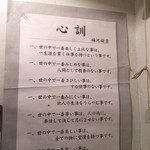 心訓
福沢諭吉
一、世の中で一番楽しく立派な事は、
一生涯を貫く仕事を持つという事です
一、世の中で一番みじめな事は、
人間として教養のない事です
一、世の中で一番さびしい事は、
する仕事のない事です
一、世の中で一番みにくい事は、
他人の生活をうらやむ事です
一、世の中で一番尊い事は、人の為に、
奉仕して決して恩にきせない事です
一、世の中で一番美しい事は、